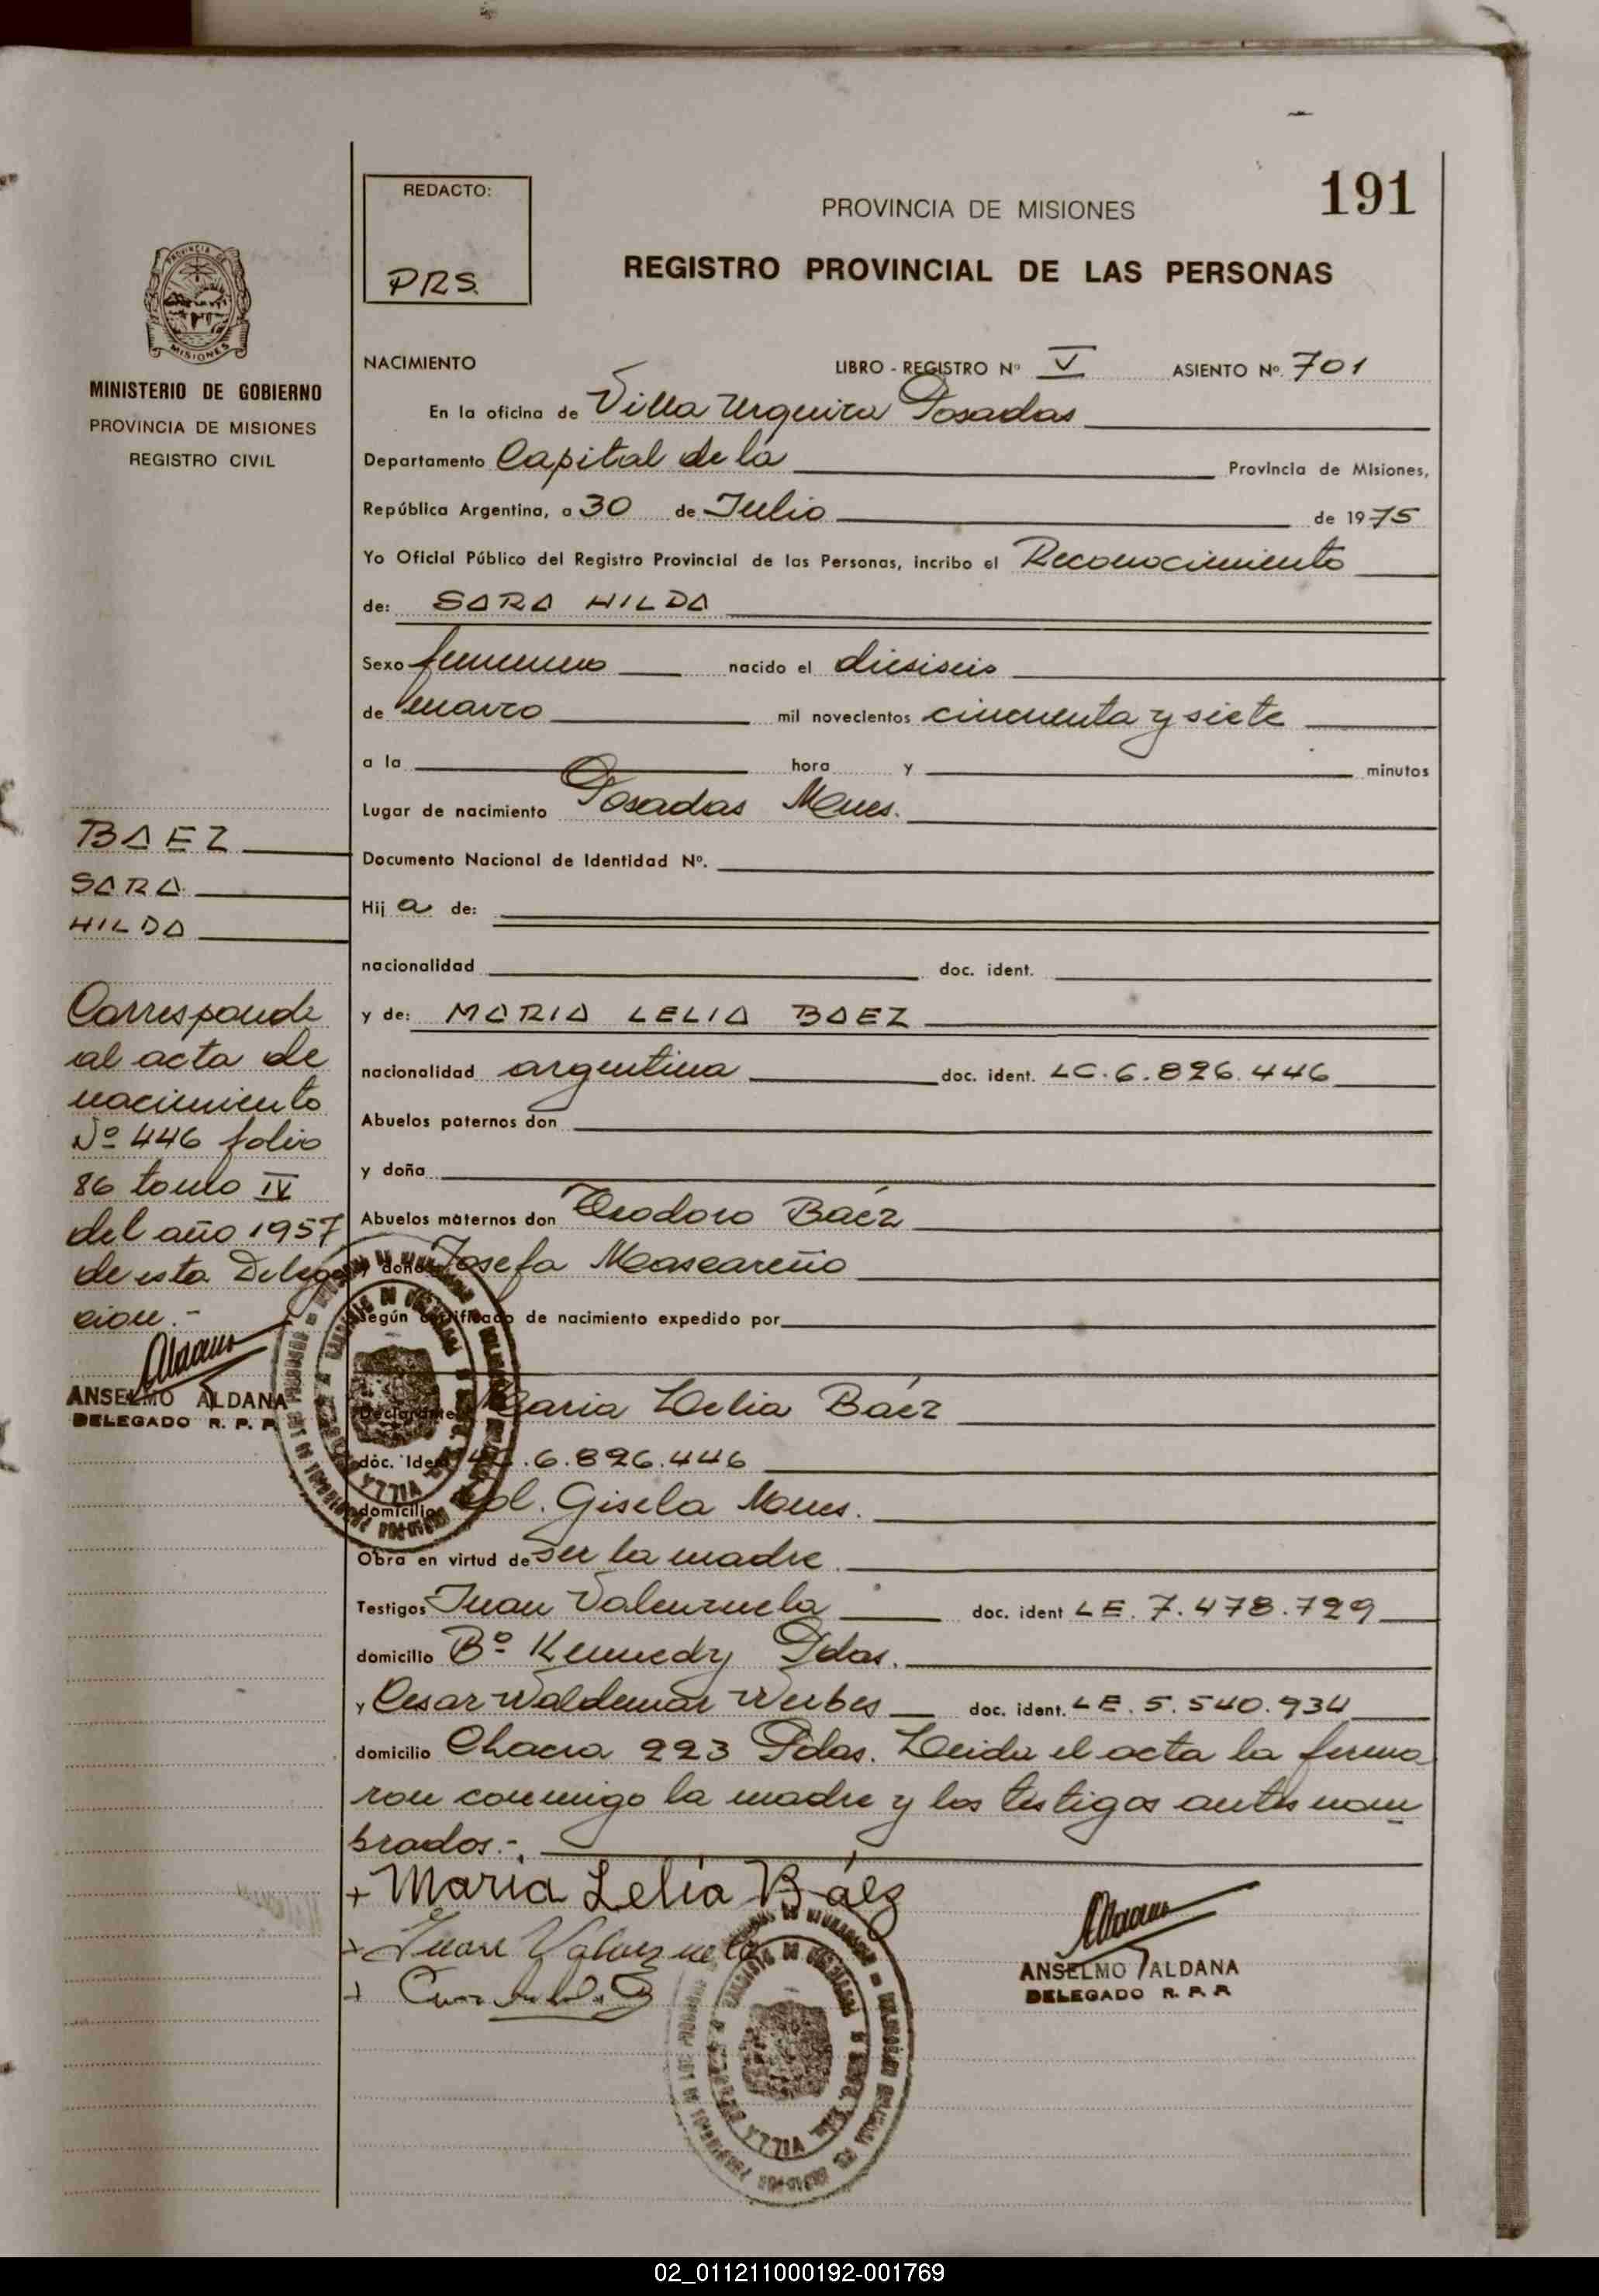 191
REDACTO:
PRS.
PROVINCIA DE MISIONES
REGISTRO PROVINCIAL DE LAS PERSONAS
PROVINCIA DE
MISIONES
MINISTERIO DE GOBIERNO
PROVINCIA DE MISIONES
REGISTRO CIVIL
NACIMIENTO LIBRO - REGISTRO Nº V ASIENTO Nº. 701
En la oficina de Villa Urquiza Posadas
Departamento Capital de la Provincia de Misiones,
República Argentina, a 30 de Julio de 1975
Yo Oficial Público del Registro Provincial de las Personas, incribo el Reconocimiento
de: SARA HILDA
Sexo femenino nacido el diesiseis
de marzo mil novecientos cincuenta y siete
a la hora y minutos
Lugar de nacimiento Posadas Mnes.
Documento Nacional de Identidad Nº.
Hija de:
nacionalidad doc. ident.
y de: MARIA LELIA BAEZ
nacionalidad argentina doc. ident. LC.6.826.446
Abuelos paternos don
y doña
Abuelos maternos don Teodoro Báez
y doña Josefa Mascareño
Según certificado de nacimiento expedido por
Declarante Maria Lelia Báez
doc. Ident LC.6.826.446
domicilio Col. Gisela Mnes.
Obra en virtud de ser la madre
Testigos Juan Valenzuela doc. ident LE. 7.478.729
domicilio Bº Kennedy Pdas.
y Cesar Waldemar doc. ident. LE. 5.540.934
domicilio Chacra 223 Pdas. Leida el acta la firma
ron conmigo la madre y los testigos antes nom
brados.-
+ Maria Lelia Báez
+ Juan Valenzuela
+
ANSELMO ALDANA
DELEGADO R. P. P.
BAEZ
SARA
HILDA
Corresponde
al acta de
nacimiento
Nº 446 folio
86 tomo IV
del año 1957
de esta Delega
cion.-
ANSELMO ALDANA
DELEGADO R. P. P.
02_011211000192-001769